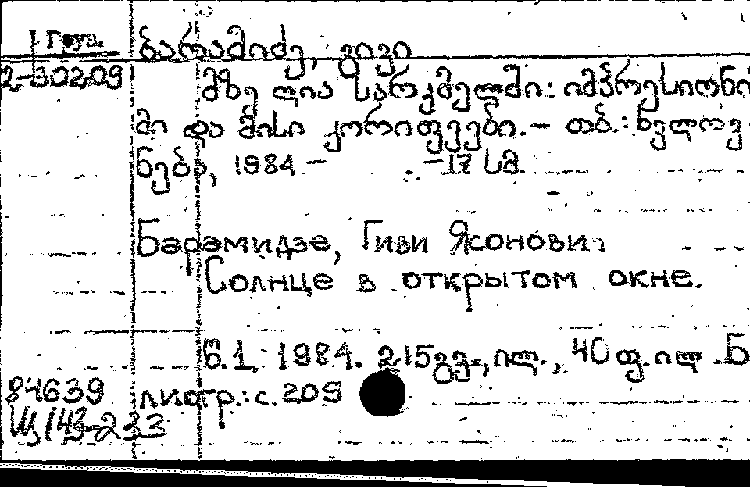 Груз. ბარამიძე, გივი
2-30209 მზე ღია სარკმელში: იმპრესიონი
მი და მისი კორიფეები. – თბ.: ხელოვ-
ნება, 1984 – – 17 სმ.
Барамидзе, Гиви Ясонович
Солнце в открытом окне.
წ.1, 1984. 215გვ., ილ., 40 ფ.ილ. Б
84639 лиогр.: с. 209
Щ143-233